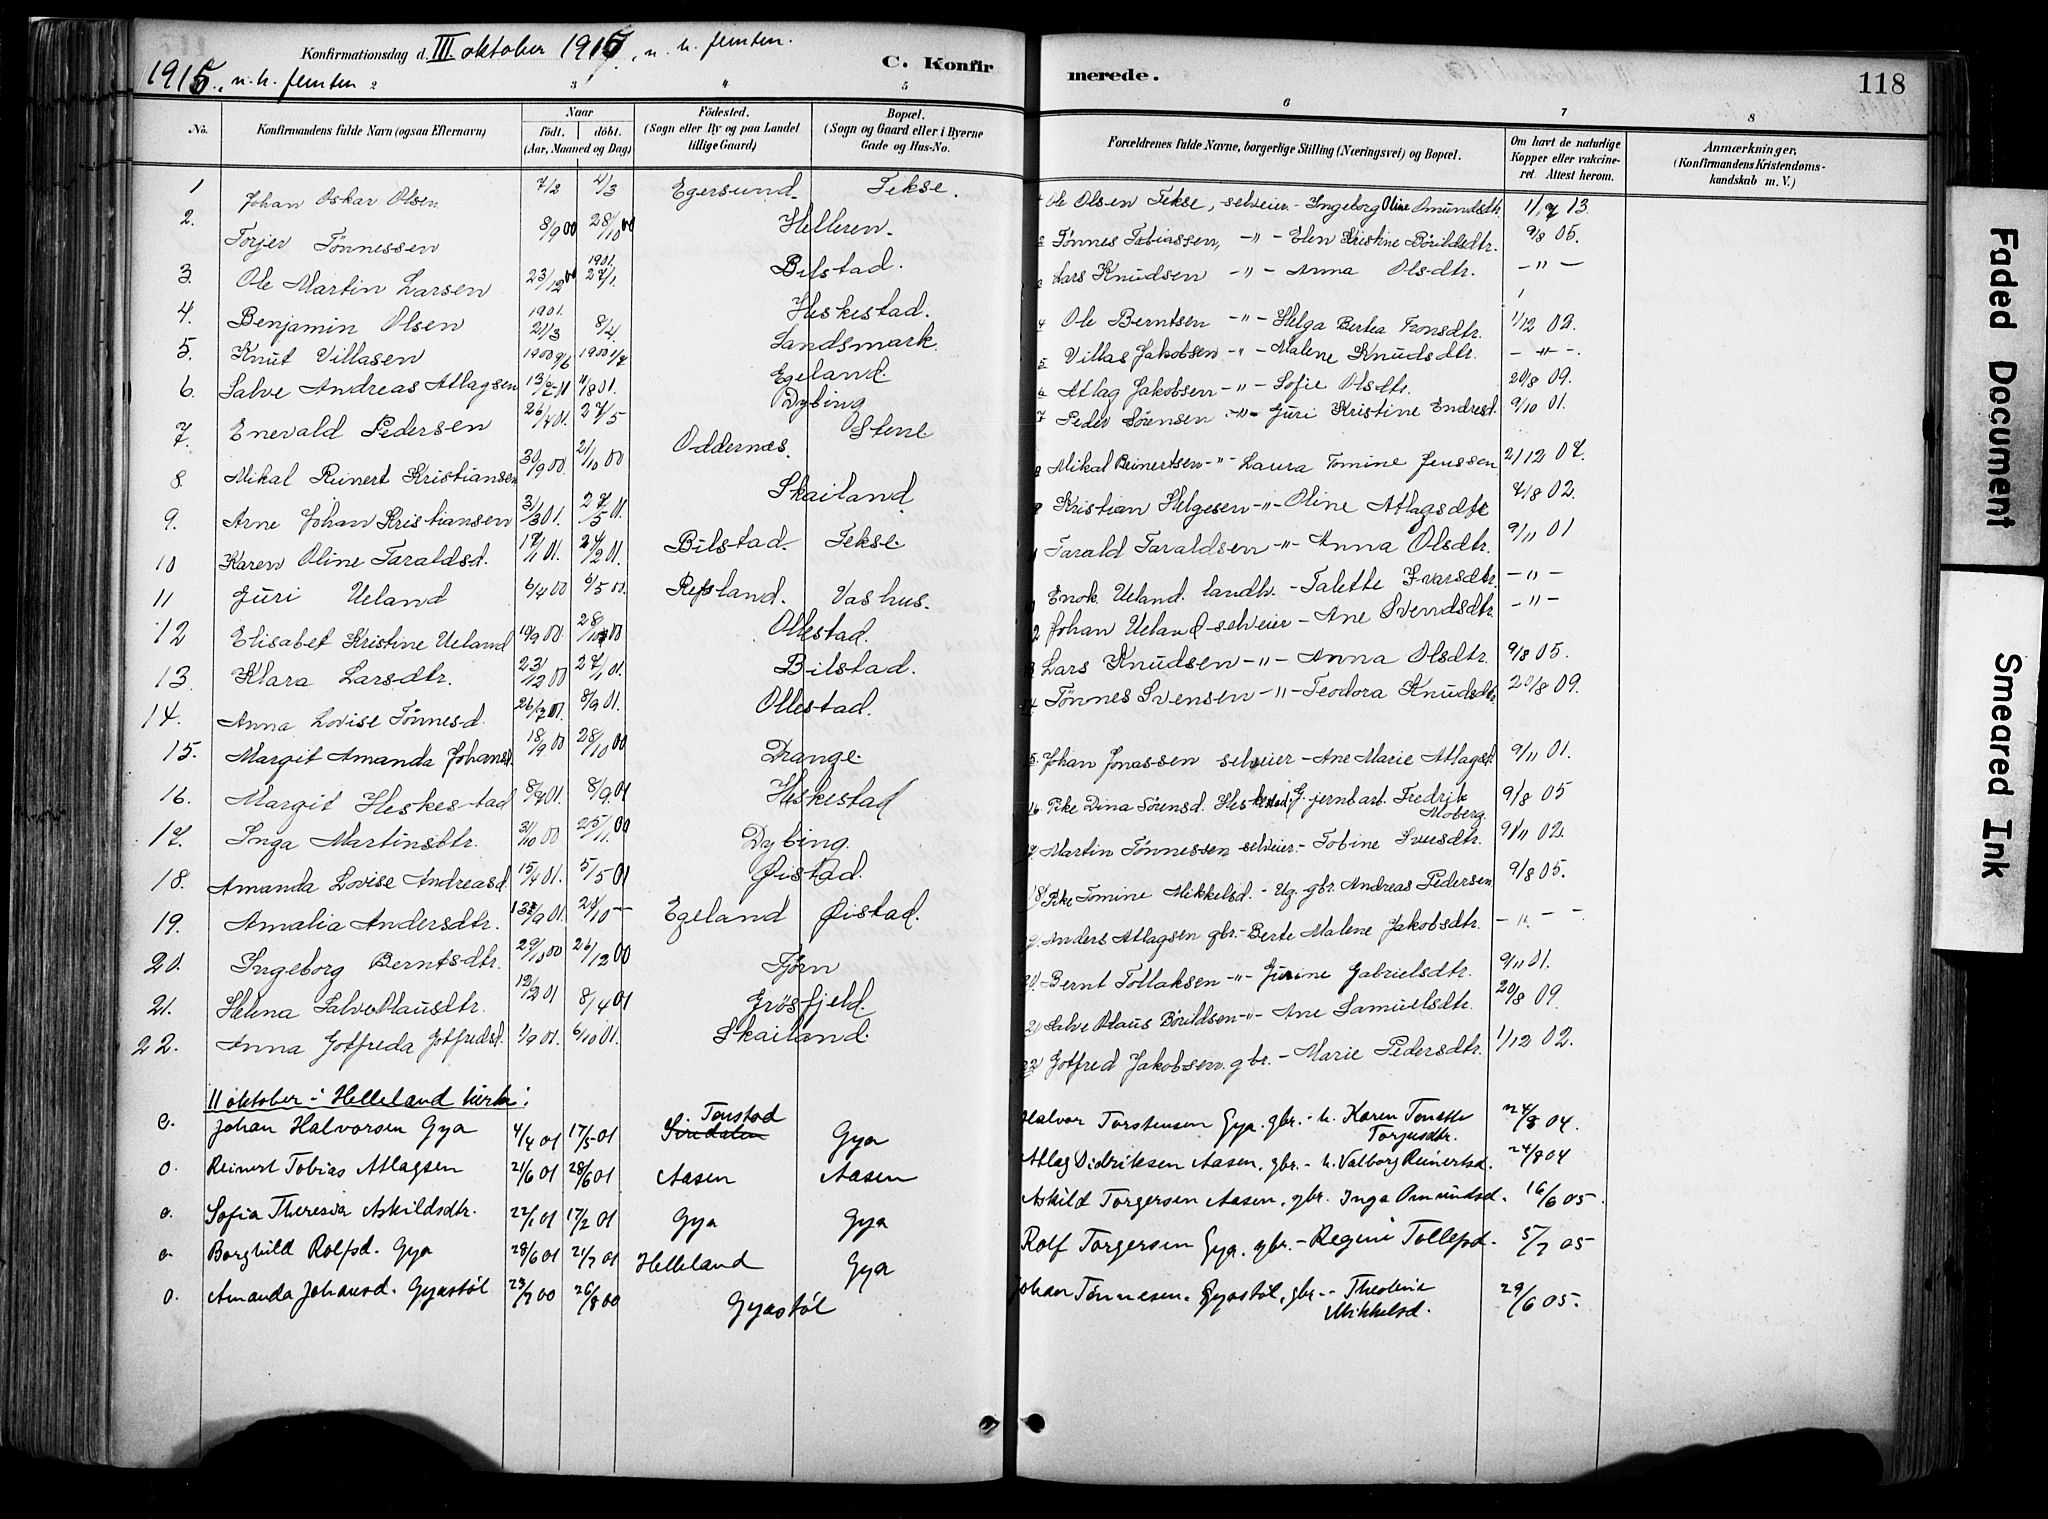 Konfirmationsdag d. III. oktober 1915, n. h. femten.
1915, n. h. femten
C. Konfirmerede.
118
2 3 4 5 6 7 8
No. Konfirmandens fulde Navn (ogsaa Efternavn) Naar født. døbt. (Aar, Maaned og Dag) Fødested. (Sogn eller By og paa Landet tillige Gaard) Bopæl. (Sogn og Gaard eller i Byerne Gade og Hus-No. Forældrenes fulde Navne, borgerlige Stilling (Næringsvei) og Bopæl. Om havt de naturlige Kopper eller vakcineret. Attest herom. Anmærkninger, (Konfirmandens Kristendomskundskab m. V.)
1 Johan Oskar Olsen 7/2 4/3 Egersund Tekse. Ole Olsen Tekse, selveier - Ingeborg Oline Omundsdtr. 11/7 13.
2. Torjer Tønnessen 8/9 00 28/10 00 Helleren. Tønnes Tobiassen, -"- Elen Kristine Børildsdtr. 9/8 05.
3. Ole Martin Larsen 23/12 00 1901. 27/1. Bilstad. Lars Knudsen -"- Anna Olsdtr. -"-
4. Benjamin Olsen 1901. 21/3 8/4 Heskestad. Ole Berntsen -"- Helga Bertea Tronsdtr. 1/12 02.
5. Knut Villasen 1900 9/6 1900 1/7 Landsmark. Villas Jakobsen -"- Malene Knudsdtr. -"-.
6. Salve Andreas Atlagsen Egeland. Atlag Jakobsen -"- Sofie Olsdtr. 20/8 09.
7. Enevald Pedersen 26/4 01. 27/5 Dybing Peder Sørensen -"- Guri Kristine Endresd. 9/10 01.
8. Mikal Reinert Kristiansen 30/9 00 21/10 00 Oddernæs. Stene Mikal Reinertsen -"- Laura Tomine Jenssen 21/12 07.
9. Arne Johan Kristiansen 31/3 01. 27/5 01. Skailand Kristian Helgesen -"- Oline Atlagsdtr. 4/8 02.
10 Karen Oline Taraldsd. 17/1 01. 24/2 01. Bilstad. Tekse. Tarald Taraldsen -"- Anna Olsdtr. 9/11 01
11 Guri Ueland 6/4 00 6/5 00. Refsland. Vashus. Enok Ueland. landh. - Talette Ivarsdtr. -"-
12 Elisabet Kristine Ueland 19/9 00. 28/10 00 Ollestad. Johan Ueland selveier - Ane Svendsdtr. -"-
13. Klara Larsdtr. 23/12 00 27/1 01. Bilstad. Lars Knudsen -"- Anna Olsdtr. 9/8 05.
14. Anna Lovise Tønnesd. 26/7 01. 8/9 01. Ollestad. 14 Tønnes Svensen -"- Teodora Knudsdtr. 20/8 09.
15. Margit Amanda Johansd. 18/9 00 28/10 00 Drange. Johan Jonassen selveier - Ane Marie Atlagsd. 9/11 01.
16. Margit Heskestad 8/7 01. 8/9 01 Heskestad 16. Pike Dina Sørensd. Heskestad, G. jernbarb. Fredrik Moberg. 9/8 05
17. Inga Martinsdtr. 31/10 00 25/11 00 Dybing. Martin Tønnessen selveier - Tobine Svensdtr. 9/11 02.
18. Amanda Lovise Andreasd. 15/4 01. 5/5 01 Øistad. 18 Pike Tomine Mikkelsd. - Ug. gbr. Andreas Pedersen 9/8 05.
19. Amalia Andersdtr. Egeland Øistad. Anders Atlagsen gbr. - Berte Malene Jakobsdtr. -"- -
20. Ingeborg Berntsdtr. 29/10 00 26/12 00 Tjørn 20. Bernt Tollaksen -"- Gurine Gabrielsdtr. 9/11 01.
21. Helena Salve Olausdtr. 12/2 01 8/4 01 Grøsfjeld. 21 Salve Olaus Børildsen -"- Ane Samuelsdtr. 20/8 09.
22. Anna Gotfreda Gotfredsd. 1/9 01. 6/10 01. Skailand. 22 Gotfred Jakobsen gbr. - Marie Pedersdtr. 1/12 02.
11 oktober i Helleland kirke:
o. Johan Halvorsen Gya 4/4 01 17/5 01 Tonstad Sirdalen Gya Halvor Torstensen Gya. gbr. - h. Karen Tonette Torjusdtr. 24/8 04.
o. Reinert Tobias Atlagsen 21/6 01 28/6 01 Aasen Aasen Atlag Didriksen Aasen, gbr. - h. Valborg Reinertsd. 24/8 04
o. Sofia Theresia Askildsdtr. 22/1 01 17/2 01 Gya Gya Askild Torgersen Aasen, gbr. Inga Omundsd. 16/6 05.
o. Borghild Rolfsd. Gya 28/6 01 21/7 01 Helleland Gya Rolf Torgersen Gya. gbr. - Regini Tollefsd. 5/7 05
o. Amanda Johansd. Gyastøl 23/7 00 26/8 00 Gyastøl Johan Tønnesen. Gyastøl, gbr. - Theoline Mikkelsd. 29/6 05.
Faded Document
Smeared Ink